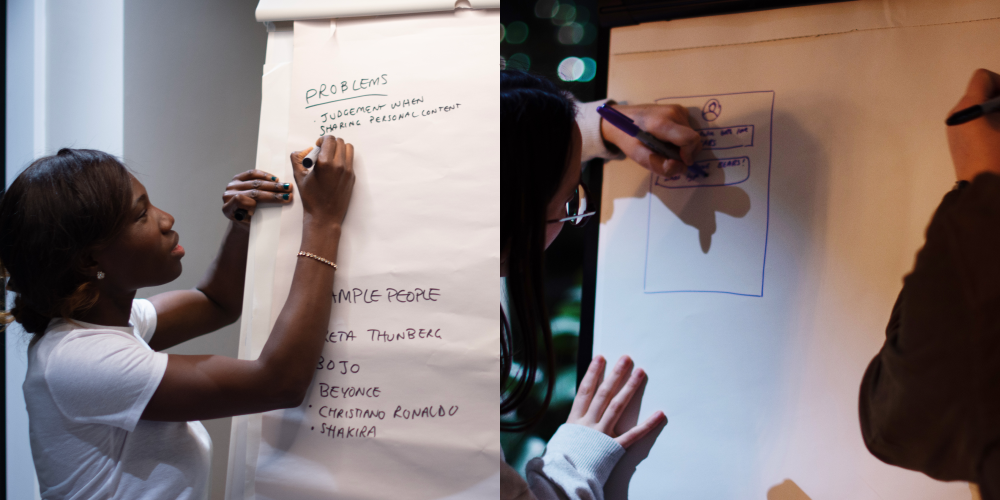 PROBLEMS
· JUDGEMENT WHEN
SHARING PERSONAL CONTENT
AMPLE PEOPLE
RETA THUNBERG
BOJO
BEYONCE
· CHRISTIANO RONALDO
· SHAKIRA